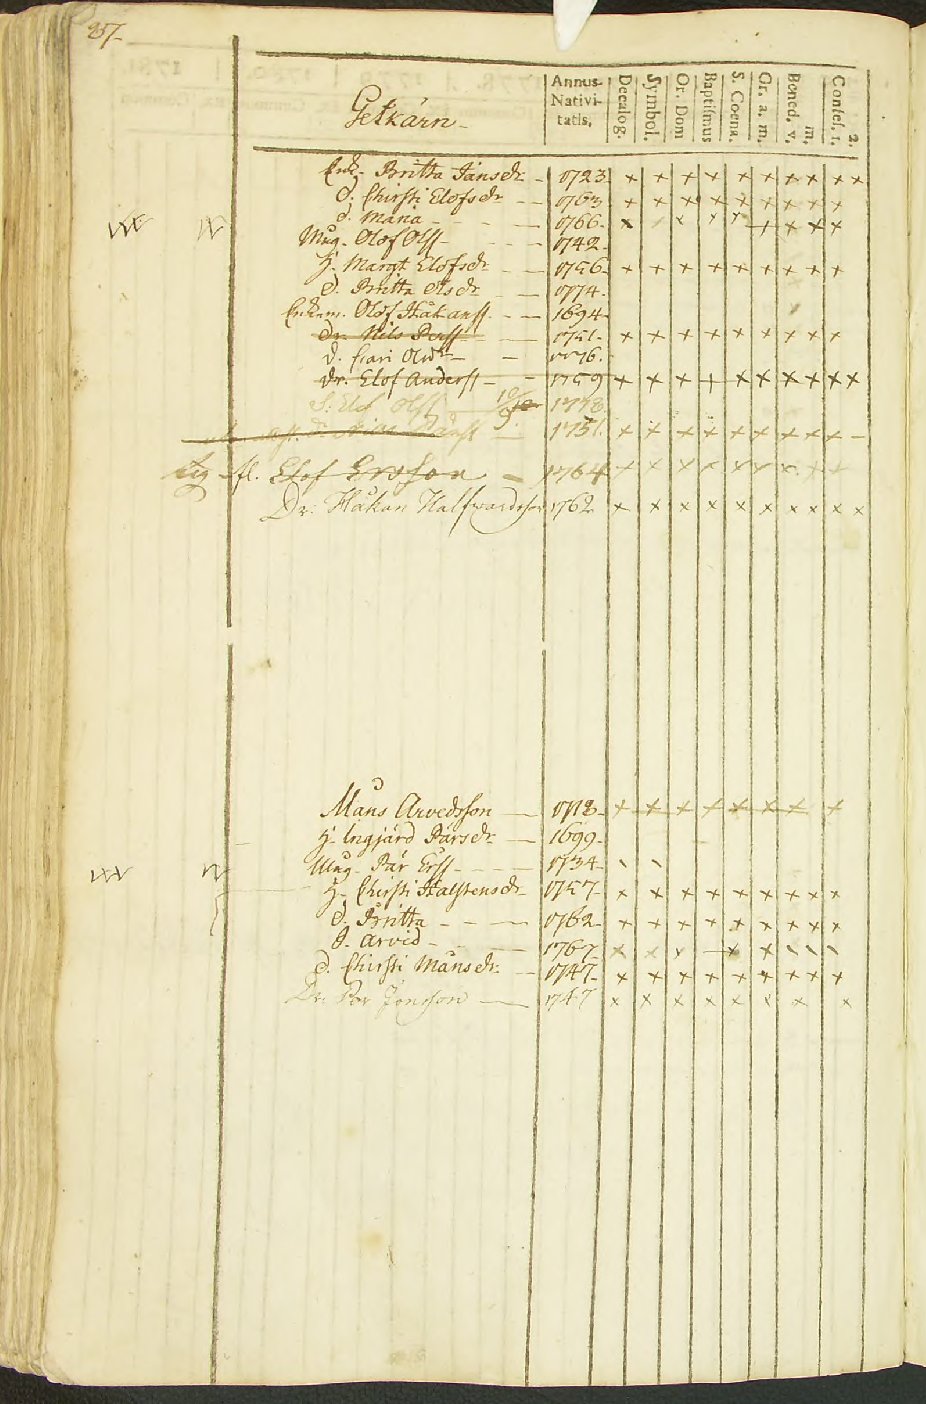 257.
Getkärn
Annus Nativitatis.
Decalog.
Symbol.
Or. Dom
Baptismus
S. Coena.
Or. a. m.
Bened. v. m.
Confes. 1. 2.
Enk. Britta Jansdr - 1723.
d. Chirsti Elofsdr - 1763
d. Maria - 1766.
Mug. Olof Olss - 1742.
H. Margt Elofsdr - 1756.
d. Britta Olsdr - 1774.
Enkem. Olof Håkanss - 1694.
Dr. Nils Perss - 1751.
d. Kari Olsdr - 1776.
Dr. Elof Anderss - 1759
S. Elof Olss 1778.
1751.
fl. Elof Ersson - 1764
Dr. Håkan Halfvardsson 1762
Måns Arvedsson - 1713.
H. Ingjärd Pärsdr - 1699.
Mug. Pär Erss - 1734.
H. Chirsti Halstensdr - 1757.
d. Britta - 1762.
S. Arvid - 1767.
d. Chirsti Månsdr - 1747.
Dr. Per Jonsson - 1747